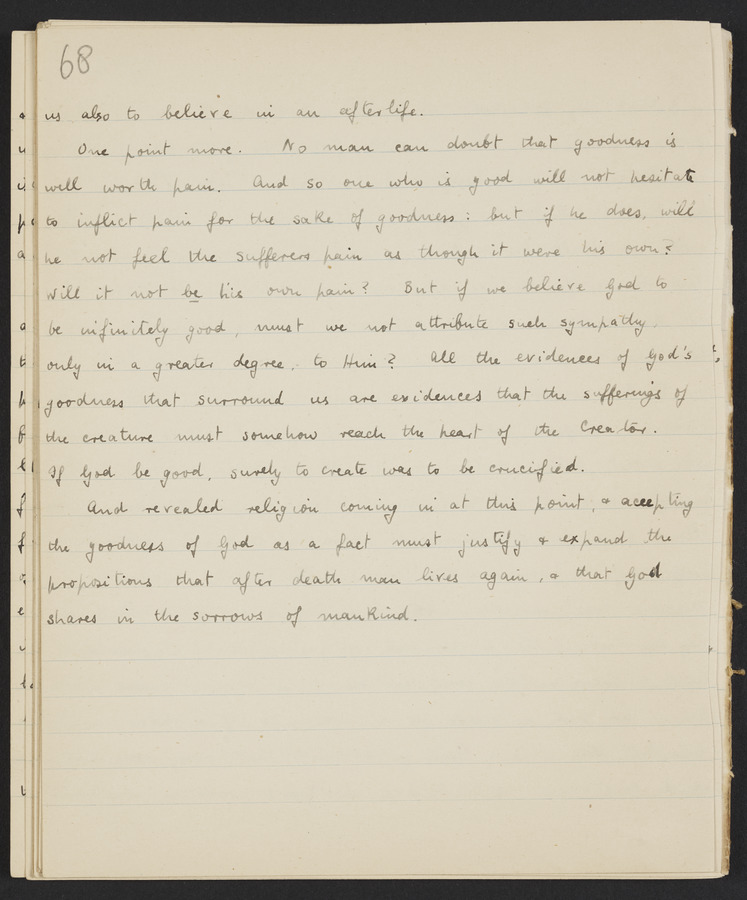 68
us also to believe in an afterlife.
One point more. No man can doubt that goodness is
well worth pain. And so one who is good will not hesitate
to inflict pain for the sake of goodness: but if he does, will
he not feel the sufferers pain as though it were his own?
Will it not be his own pain? But if we believe God to
be infinitely good, must we not attribute such sympathy,
only in a greater degree, to Him? All the evidences of God's
goodness that surround us are evidences that the sufferings of
the creature must somehow reach the heart of the Creator.
If God be good, surely to create was to be crucified.
And revealed religion coming in at this point, & accepting
the goodness of God as a fact must justify & expand the
propositions that after death man lives again, & that God
shares in the sorrows of mankind.